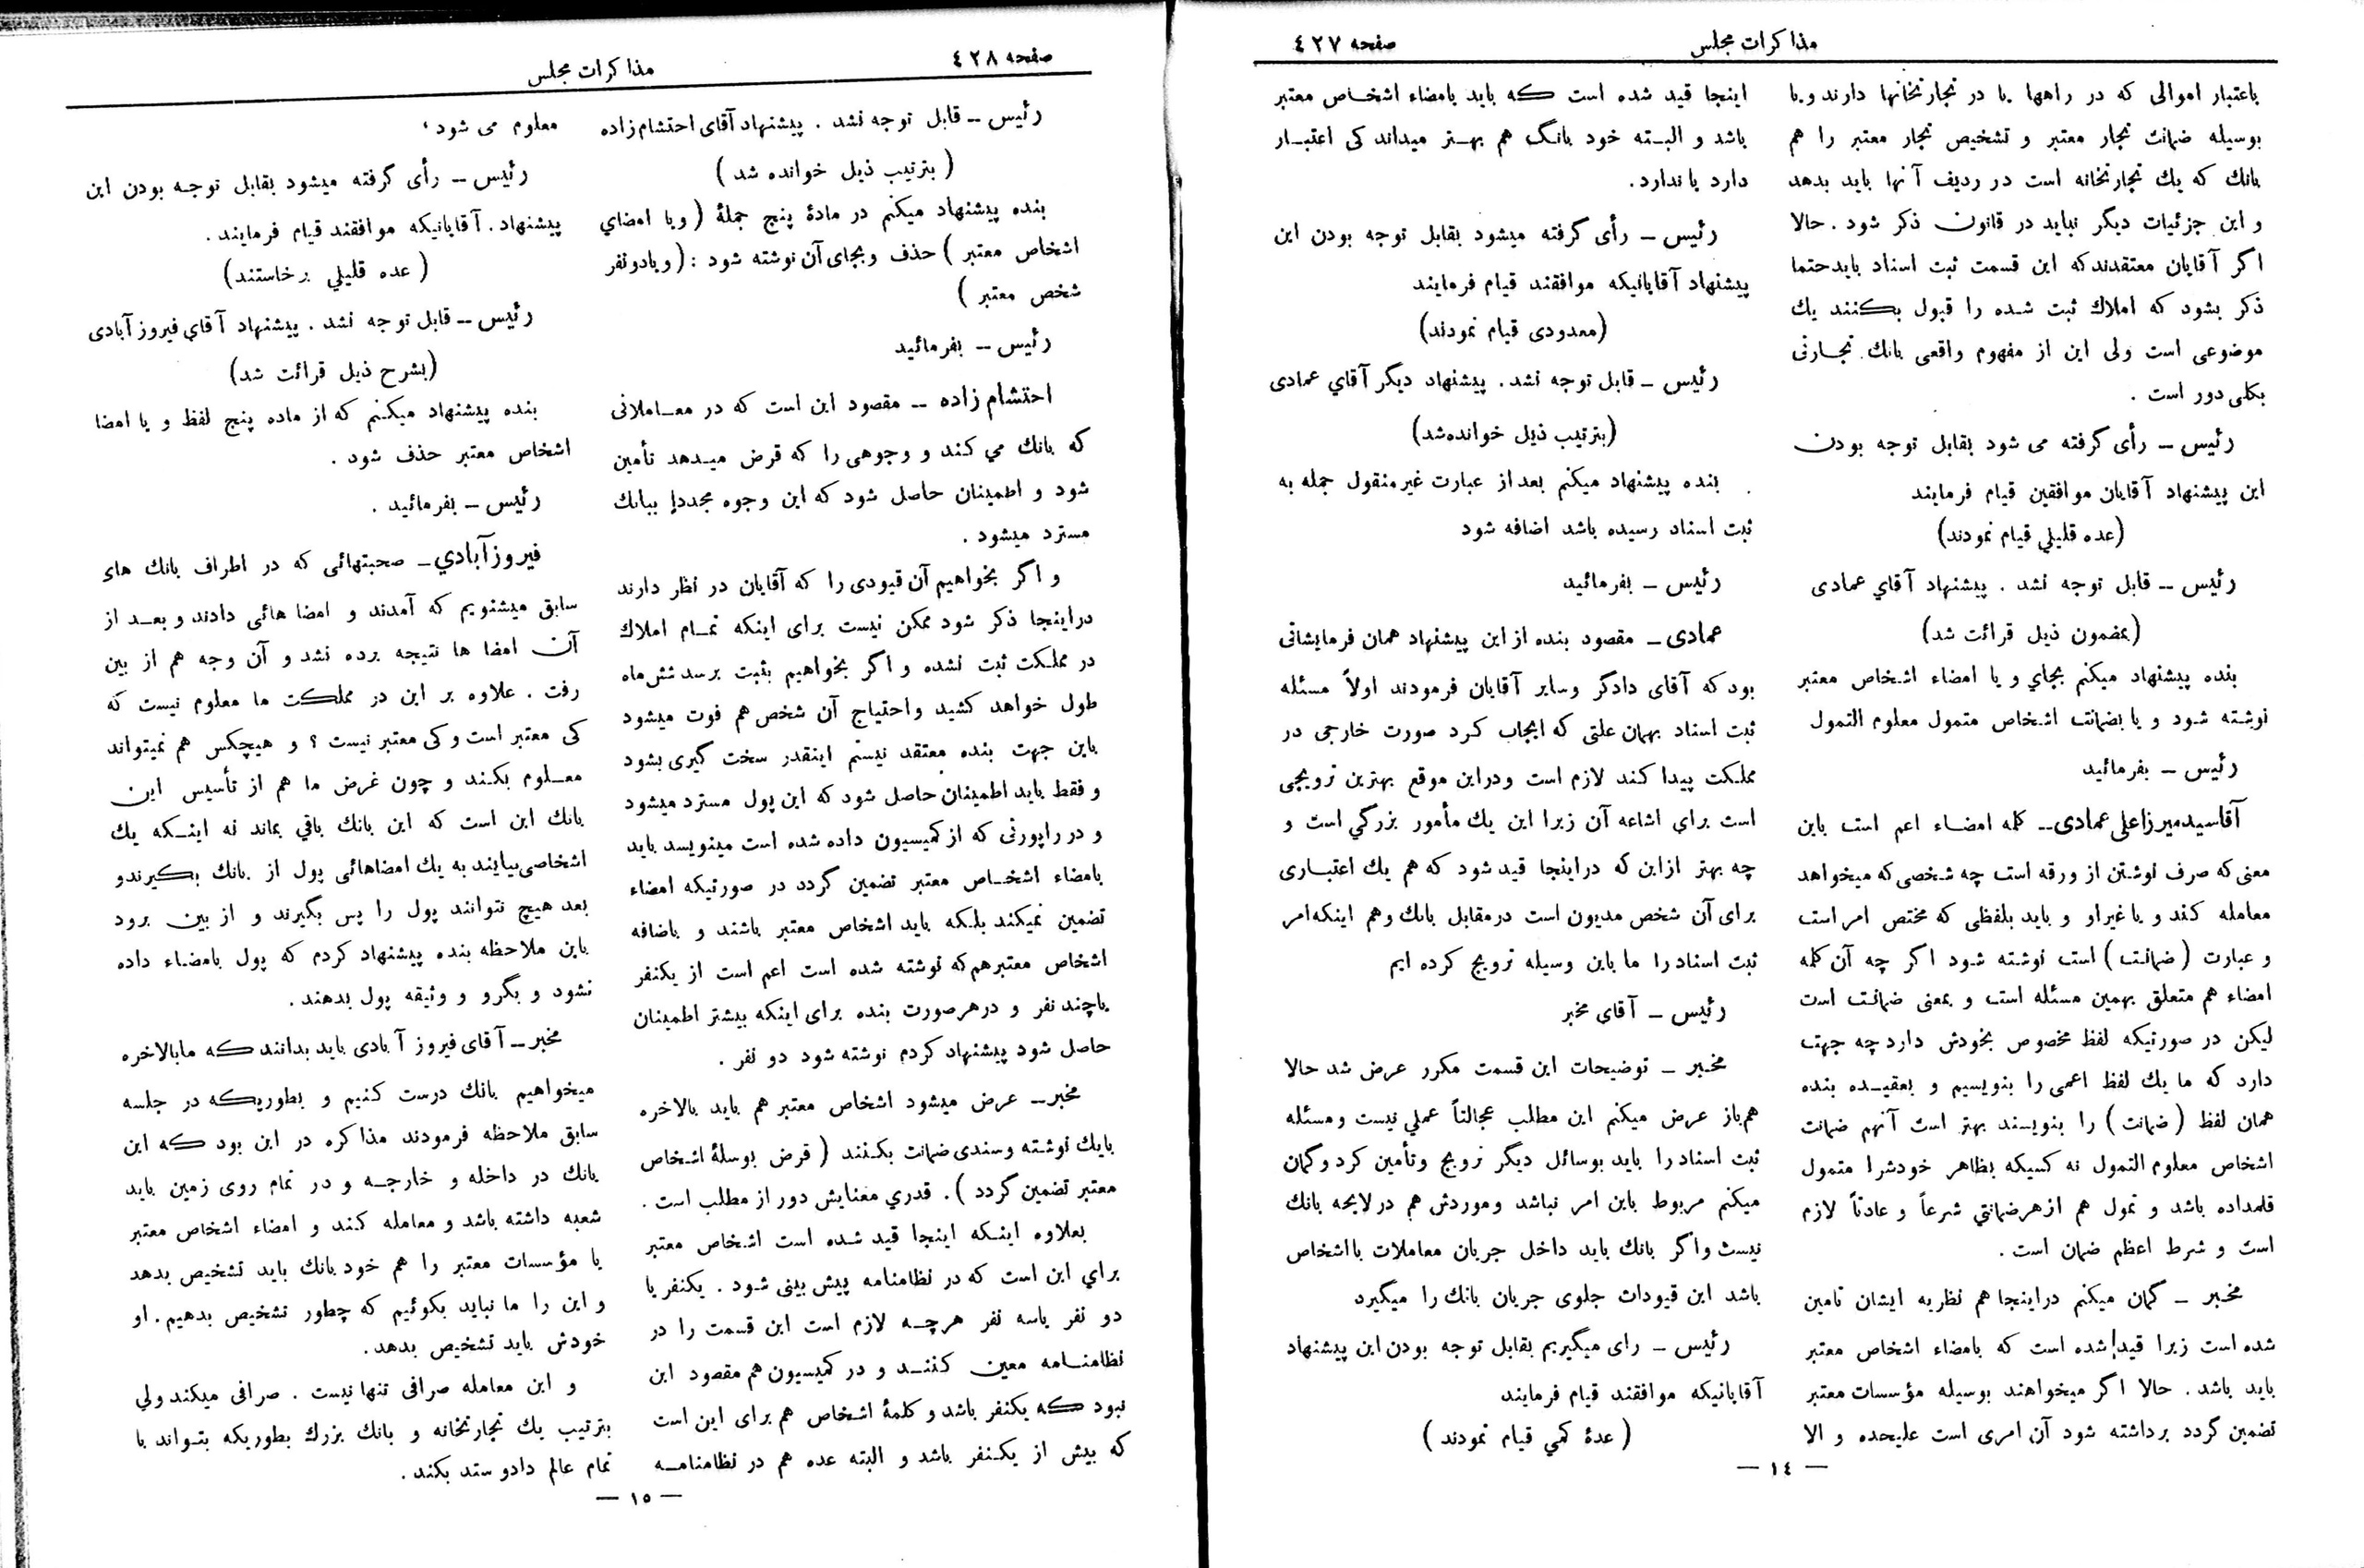 مذاکرات مجلس
صفحه ٤٢٧
باعتبار اموالی که در راهها یا در تجارتخانها دارند و یا
بوسیله ضمانت تجار معتبر و تشخیص تجار معتبر را هم
بانك که یك تجارتخانه است در ردیف آنها باید بدهد
و این جزئیات دیگر نباید در قانون ذکر شود . حالا
اگر آقایان معتقدند که این قسمت ثبت اسناد باید حتما
ذکر بشود که املاك ثبت شده را قبول بکنند یك
موضوعی است ولی این از مفهوم واقعی بانك تجارتی
بکلی دور است .
رئیس – رأی گرفته می شود بقابل توجه بودن
این پیشنهاد آقایان موافقین قیام فرمایند
(عده قلیلي قیام نمودند)
رئیس – قابل توجه نشد . پیشنهاد آقاي عمادی
(بمضمون ذیل قرائت شد)
بنده پیشنهاد میکنم بجاي و یا امضاء اشخاص معتبر
نوشته شود و یا بضمانت اشخاص متمول معلوم التمول
رئیس – بفرمائید
آقاسید میرزا علی عمادی – کلمه امضاء اعم است باین
معنی که صرف نوشتن از ورقه است چه شخصی که میخواهد
معامله کند و یا غیر او و باید بلفظی که مختص امر است
و عبارت (ضمانت) است نوشته شود اگر چه آن کلمه
امضاء هم متعلق بهمین مسئله است و بمعنی ضمانت است
لیکن در صورتیکه لفظ مخصوص بخودش دارد چه جهت
دارد که ما یك لفظ اعمی را بنویسیم و بعقیده بنده
همان لفظ (ضمانت) را بنویسند بهتر است آنهم ضمانت
اشخاص معلوم التمول نه کسیکه بظاهر خودشرا متمول
قلمداده باشد و تمول هم از هر ضمانتي شرعاً و عادتاً لازم
است و شرط اعظم ضمان است .
مخبر – گمان میکنم در اینجا هم نظریه ایشان تامین
شده است زیرا قید شده است که بامضاء اشخاص معتبر
باید باشد . حالا اگر میخواهند بوسیله مؤسسات معتبر
تضمین گردد برداشته شود آن امری است علیحده و الا
اینجا قید شده است که باید بامضاء اشخاص معتبر
باشد و البته خود بانگ هم بهتر میداند کی اعتبار
دارد یا ندارد.
رئیس – رأی گرفته میشود بقابل توجه بودن این
پیشنهاد آقایانیکه موافقند قیام فرمایند
(معدودی قیام نمودند)
رئیس – قابل توجه نشد . پیشنهاد دیگر آقاي عمادی
(بترتیب ذیل خوانده شد)
بنده پیشنهاد میکنم بعد از عبارت غیر منقول جمله به
ثبت اسناد رسیده باشد اضافه شود
رئیس – بفرمائید
عمادی – مقصود بنده از این پیشنهاد همان فرمایشاتی
بود که آقای دادگر و سایر آقایان فرمودند اولاً مسئله
ثبت اسناد بهمان علتی که ایجاب کرد صورت خارجی در
مملکت پیدا کند لازم است و در این موقع بهترین ترویجی
است براي اشاعه آن زیرا این یك مأمور بزرگي است و
چه بهتر از این که در اینجا قید شود که هم یك اعتباری
برای آن شخص مدیون است در مقابل بانك و هم اینکه امر
ثبت اسناد را ما باین وسیله ترویج کرده ایم
رئیس – آقای مخبر
مخبر – توضیحات این قسمت مکرر عرض شد حالا
هم باز عرض میکنم این مطلب عجالتاً عملي نیست و مسئله
ثبت اسناد را باید بوسائل دیگر ترویج و تأمین کرد و گمان
میکنم مربوط باین امر نباشد و موردش هم در لایحه بانك
نیست و اگر بانك باید داخل جریان معاملات با اشخاص
باشد این قیودات جلوی جریان بانك را میگیرد
رئیس – رای میگیریم بقابل توجه بودن این پیشنهاد
آقایانیکه موافقند قیام فرمایند
(عدهٔ کمي قیام نمودند )
— ١٤ —
صفحه ٤٢٨
مذاکرات مجلس
رئیس – قابل توجه نشد . پیشنهاد آقای احتشام زاده
( بترتیب ذیل خوانده شد )
بنده پیشنهاد میکنم در مادهٔ پنج جملهٔ ( و یا امضاي
اشخاص معتبر ) حذف و بجای آن نوشته شود : ( و یا دو نفر
شخص معتبر )
رئیس – بفرمائید
احتشام زاده – مقصود این است که در معاملاتی
که بانك مي کند و وجوهی را که قرض میدهد تأمین
شود و اطمینان حاصل شود که این وجوه مجدداً ببانك
مسترد میشود .
و اگر بخواهیم آن قیودی را که آقایان در نظر دارند
در اینجا ذکر شود ممکن نیست برای اینکه تمام املاك
در مملکت ثبت نشده و اگر بخواهیم بثبت برسد شش ماه
طول خواهد کشید و احتیاج آن شخص هم فوت میشود
باین جهت بنده معتقد نیستم اینقدر سخت گیری بشود
و فقط باید اطمینان حاصل شود که این پول مسترد میشود
و در راپورتی که از کمیسیون داده شده است مینویسد باید
بامضاء اشخاص معتبر تضمین گردد در صورتیکه امضاء
تضمین نمیکند بلکه باید اشخاص معتبر باشند و باضافه
اشخاص معتبر هم که نوشته شده است اعم است از یکنفر
یا چند نفر و در هر صورت بنده برای اینکه بیشتر اطمینان
حاصل شود پیشنهاد کردم نوشته شود دو نفر .
مخبر – عرض میشود اشخاص معتبر هم باید بالاخره
با یك نوشته و سندی ضمانت بکنند ( قرض بوسلهٔ اشخاص
معتبر تضمین گردد ) . قدري معنایش دور از مطلب است .
بعلاوه اینکه اینجا قید شده است اشخاص معتبر
براي این است که در نظامنامه پیش بینی شود . یکنفر یا
دو نفر یا سه نفر هرچه لازم است این قسمت را در
نظامنامه معین کنند و در کمیسیون هم مقصود این
نبود که یکنفر باشد و کلمهٔ اشخاص هم برای این است
که بیش از یکنفر باشد و البته عده هم در نظامنامه
معلوم می شود ،
رئیس – رأی گرفته میشود بقابل توجه بودن این
پیشنهاد . آقایانیکه موافقند قیام فرمایند .
( عده قلیلي برخاستند)
رئیس – قابل توجه نشد . پیشنهاد آقاي فیروز آبادی
(بشرح ذیل قرائت شد)
بنده پیشنهاد میکنم که از ماده پنج لفظ و یا امضا
اشخاص معتبر حذف شود .
رئیس – بفرمائید .
فیروز آبادي – صحبتهائی که در اطراف بانك های
سابق میشنویم که آمدند و امضا هائی دادند و بعد از
آن امضا ها نتیجه برده نشد و آن وجه هم از بین
رفت . علاوه بر این در مملکت ما معلوم نیست که
کی معتبر است و کی معتبر نیست ؟ و هیچکس هم نمیتواند
معلوم بکند و چون غرض ما هم از تأسیس این
بانك این است که این بانك باقي بماند نه اینکه یك
اشخاصی بیایند به یك امضاهائی پول از بانك بگیرند و
بعد هیچ نتوانند پول را پس بگیرند و از بین برود
باین ملاحظه بنده پیشنهاد کردم که پول بامضاء داده
نشود و بگرو و وثیقه پول بدهند .
مخبر – آقای فیروز آبادی باید بدانند که ما بالاخره
میخواهیم بانك درست کنیم و بطوریکه در جلسه
سابق ملاحظه فرمودند مذاکره در این بود که این
بانك در داخله و خارجه و در تمام روی زمین باید
شعبه داشته باشد و معامله کند و امضاء اشخاص معتبر
یا مؤسسات معتبر را هم خود بانك باید تشخیص بدهد
و این را ما نباید بگوئیم که چطور تشخیص بدهیم . او
خودش باید تشخیص بدهد.
و این معامله صرافی تنها نیست . صرافی میکند ولي
بترتیب یك تجارتخانه و بانك بزرك بطوریکه بتواند با
تمام عالم داد و ستد بکند .
— ١٥ —